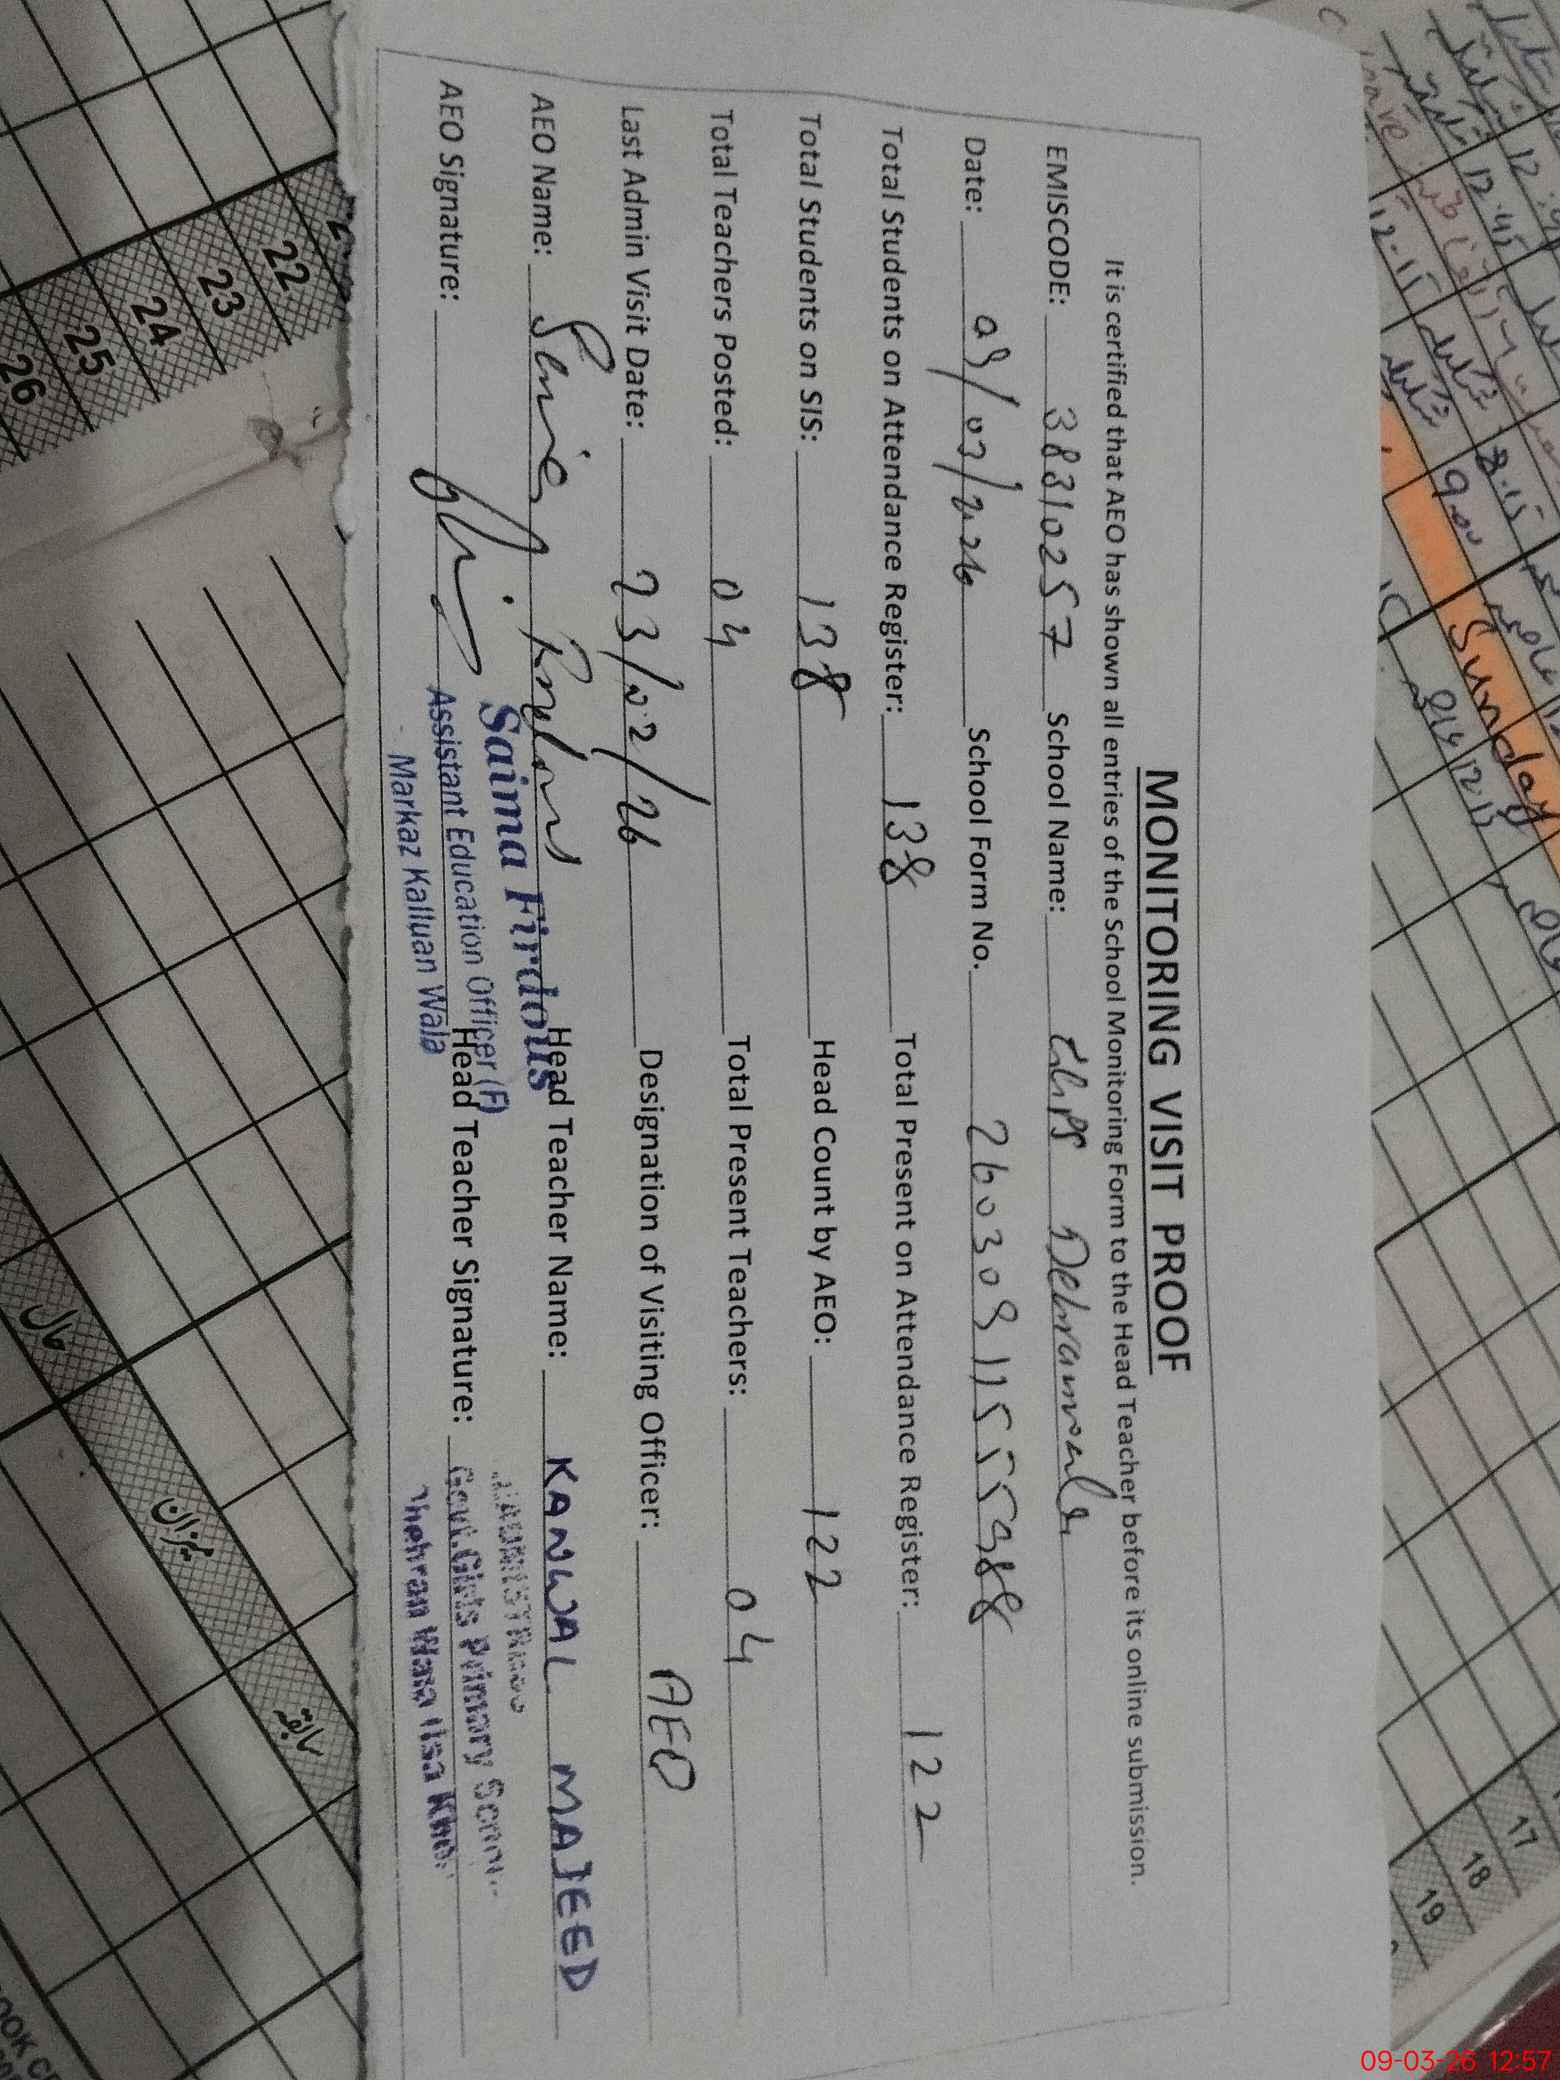 MONITORING VISIT PROOF
It is certified that AEO has shown all entries of the School Monitoring Form to the Head Teacher before its online submission.
EMISCODE: 38310257 School Name: GGPS Dehranwala
Date: 09/03/2026 School Form No. 26030911555988
Total Students on Attendance Register: 138 Total Present on Attendance Register: 122
Total Students on SIS: 138 Head Count by AEO: 122
Total Teachers Posted: 04 Total Present Teachers: 04
Last Admin Visit Date: 23/02/26 Designation of Visiting Officer: AEO
AEO Name: Saima Firdous Head Teacher Name: KANWAL MAJEED
AEO Signature: Head Teacher Signature:
Saima Firdous
Assistant Education Officer (F)
Markaz Kalluan Wala
Govt. Girls Primary
Wala Isa
22
23
24
25
26
میزان
سابقہ
حال
Sunday
12.45
12.15
8.15
9.00
17
18
19
09-03-26 12:57